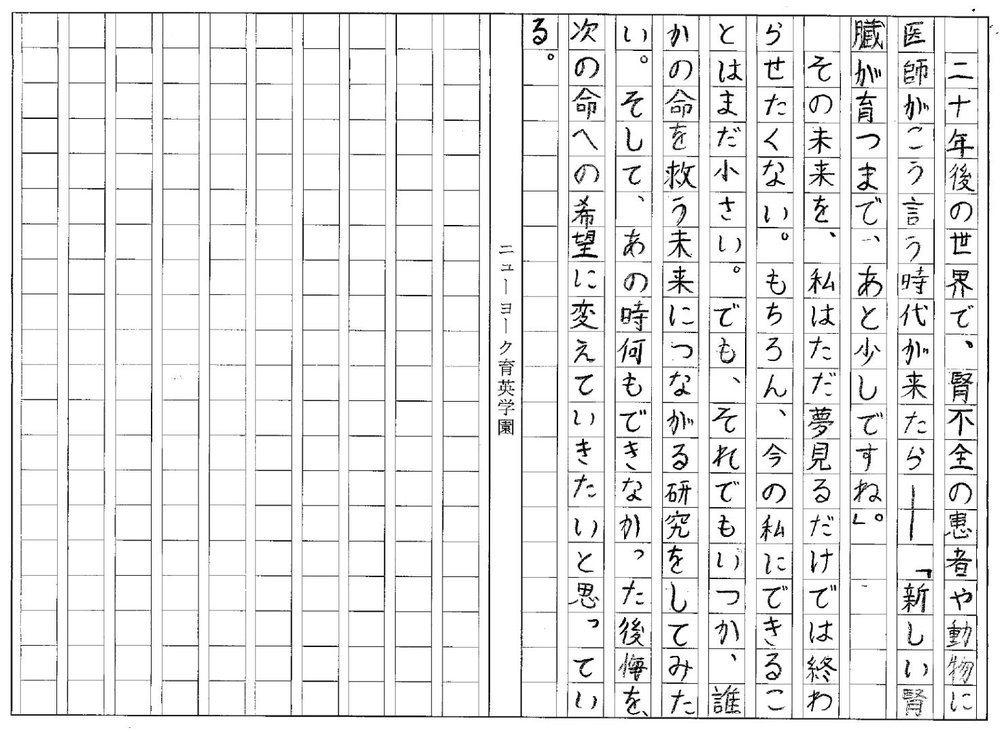 二十年後の世界で、腎不全の患者や動物に
医師がこう言う時代が来たら――「新しい腎
臓が育つまで、あと少しですね」。
　その未来を、私はただ夢見るだけでは終わ
らせたくない。もちろん、今の私にできるこ
とはまだ小さい。でも、それでもいつか、誰
かの命を救う未来につながる研究をしてみた
い。そして、あの時何もできなかった後悔を、
次の命への希望に変えていきたいと思ってい
る。
ニューヨーク育英学園